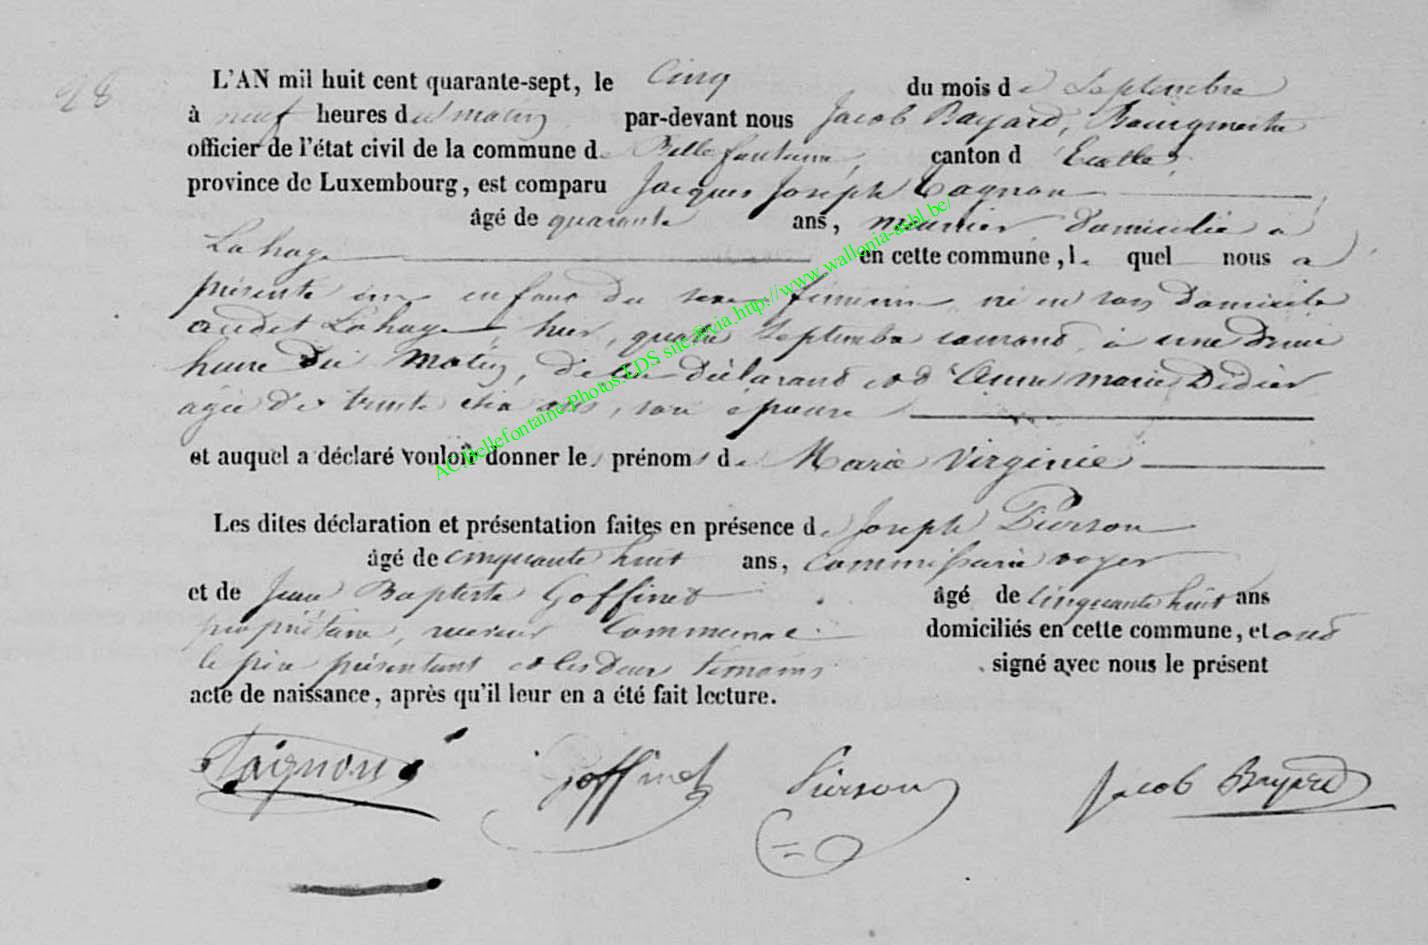 28
L'AN mil huit cent quarante-sept, le Cinq du mois de Septembre
à neuf heures du matin par-devant nous Jacob Bayard, Bourgmestre
officier de l'état civil de la commune de Bellefontaine, canton d'Etalle,
province de Luxembourg, est comparu Jacques Joseph Tagnon
âgé de quarante ans, meunier domicilié à
Lahage en cette commune, lequel nous a
présenté un enfant du sexe féminin né en son domicile
audit Lahage, hier, quatre Septembre courant à une demi
heure du matin, de lui déclarant et d'Anne Marie Didier
agée de trente ans, son épouse
et auquel a déclaré vouloir donner les prénoms de Marie Virginie
Les dites déclaration et présentation faites en présence de Joseph Pierson
âgé de cinquante huit ans, Commissaire voyer
et de Jean Baptiste Goffinet âgé de cinquante huit ans
propriétaire, receveur Communal domiciliés en cette commune, et ont
le père présentant et les deux témoins signé avec nous le présent
acte de naissance, après qu'il leur en a été fait lecture.
Tagnon Goffinet Pierson Jacob Bayard
AC Bellefontaine Photos LDS site @via http://www.wallonia-asbl.be/